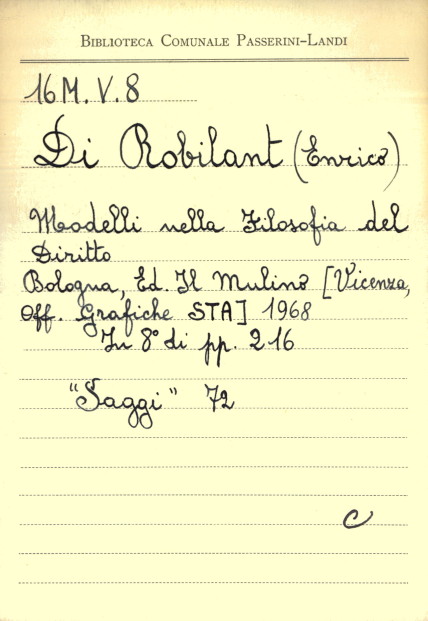 BIBLIOTECA COMUNALE PASSERINI-LANDI
16 M. V. 8
Di Robilant (Enrico)
Modelli nella Filosofia del
Diritto
Bologna, Ed. Il Mulino [Vicenza,
Off. Grafiche STA] 1968
In 8° di pp. 216
"Saggi" 72
C